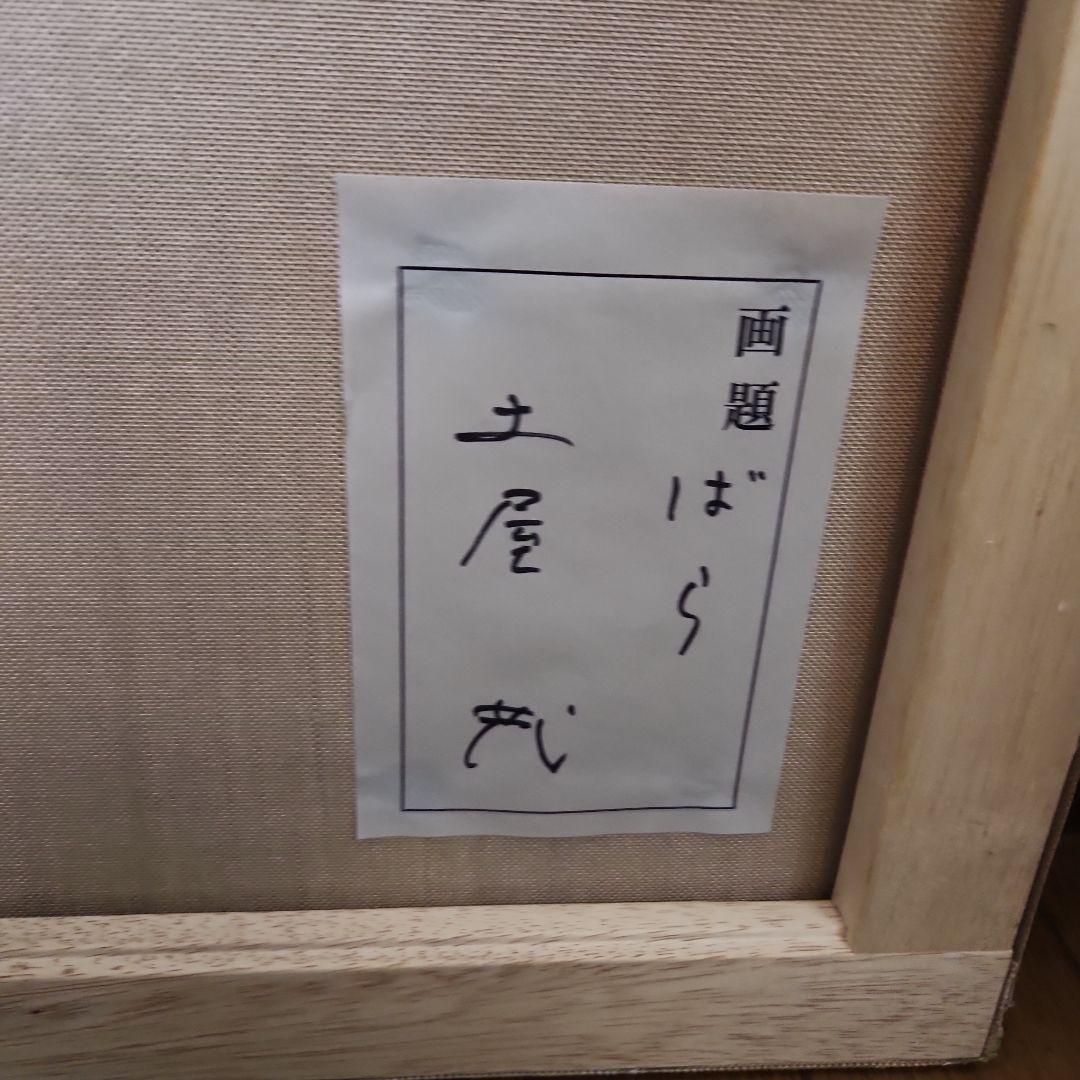 画題 ばら
土屋